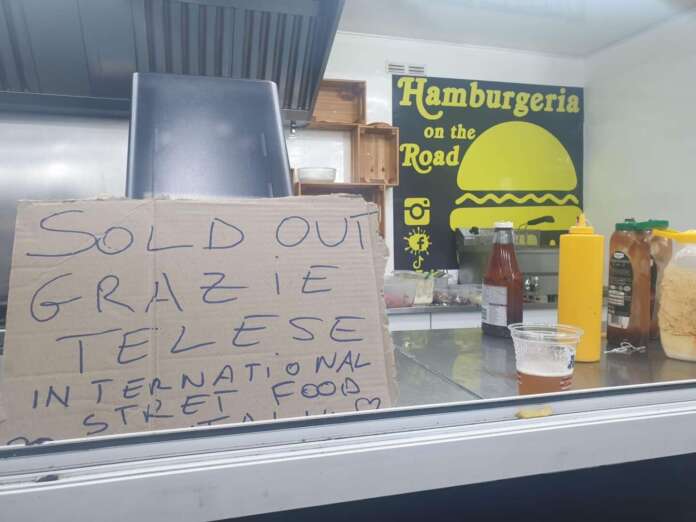 SOLD OUT
GRAZIE
TELESE
INTERNATIONAL
STREET FOOD
Hamburgeria
on the
Road